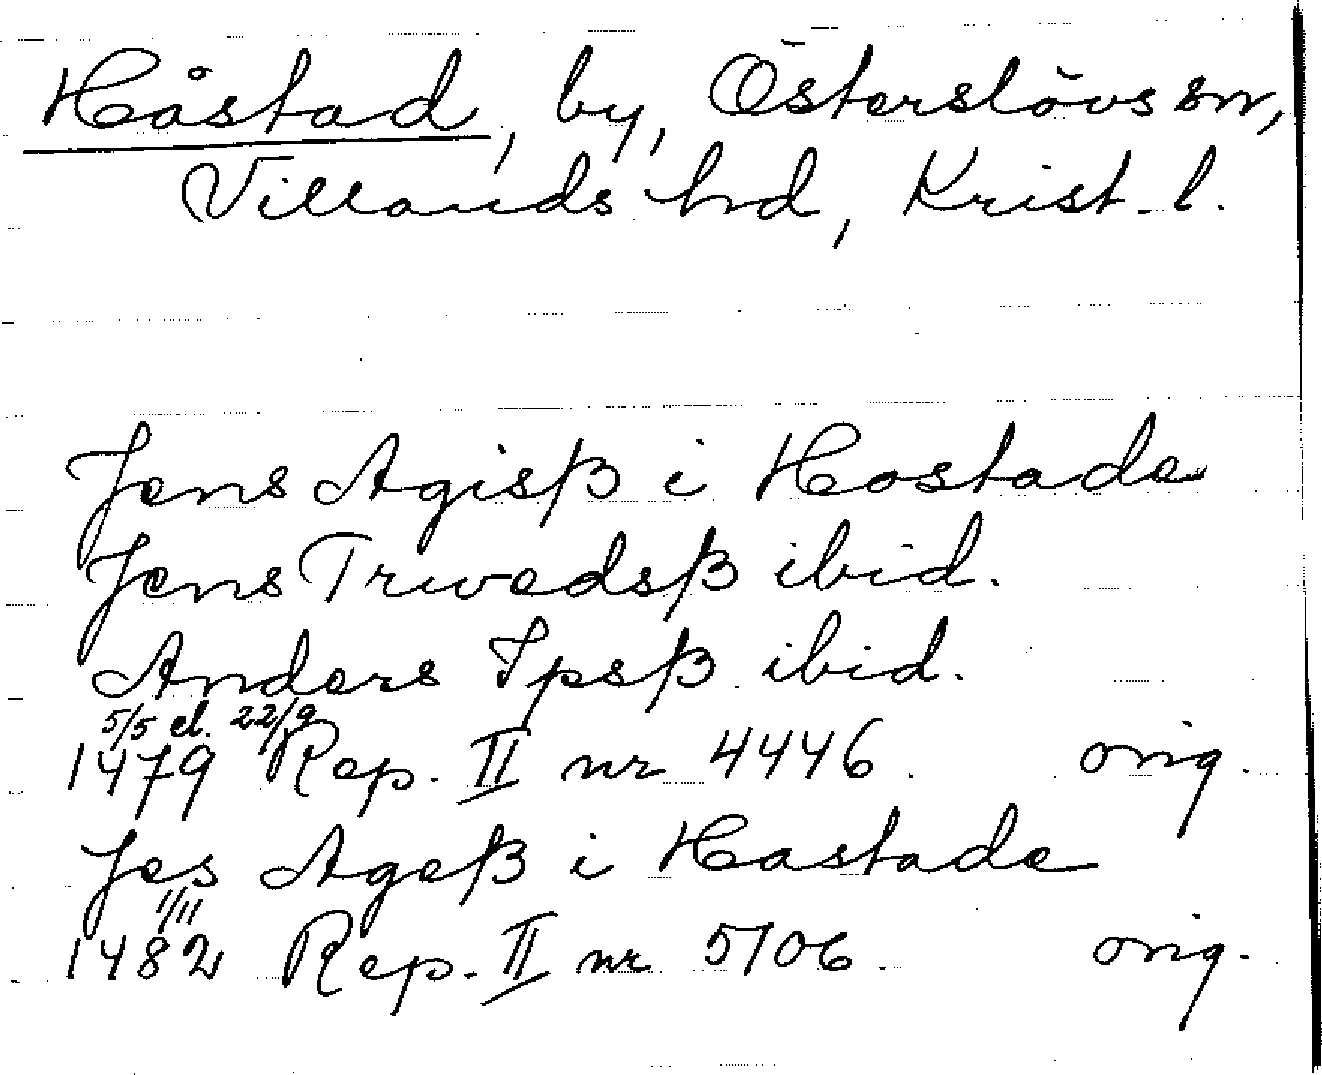 Håstad, by, Österslövs sn,
Villands hd, Krist. l.
Jens Agisß i Hostade
Jens Trwedsß ibid.
Anders Ipsß ibid.
5/5 el. 22/9
1479 Rep. II nr 4446. orig.
Jes Ageß i Hastade
1/11
1482 Rep. II nr 5106. orig.